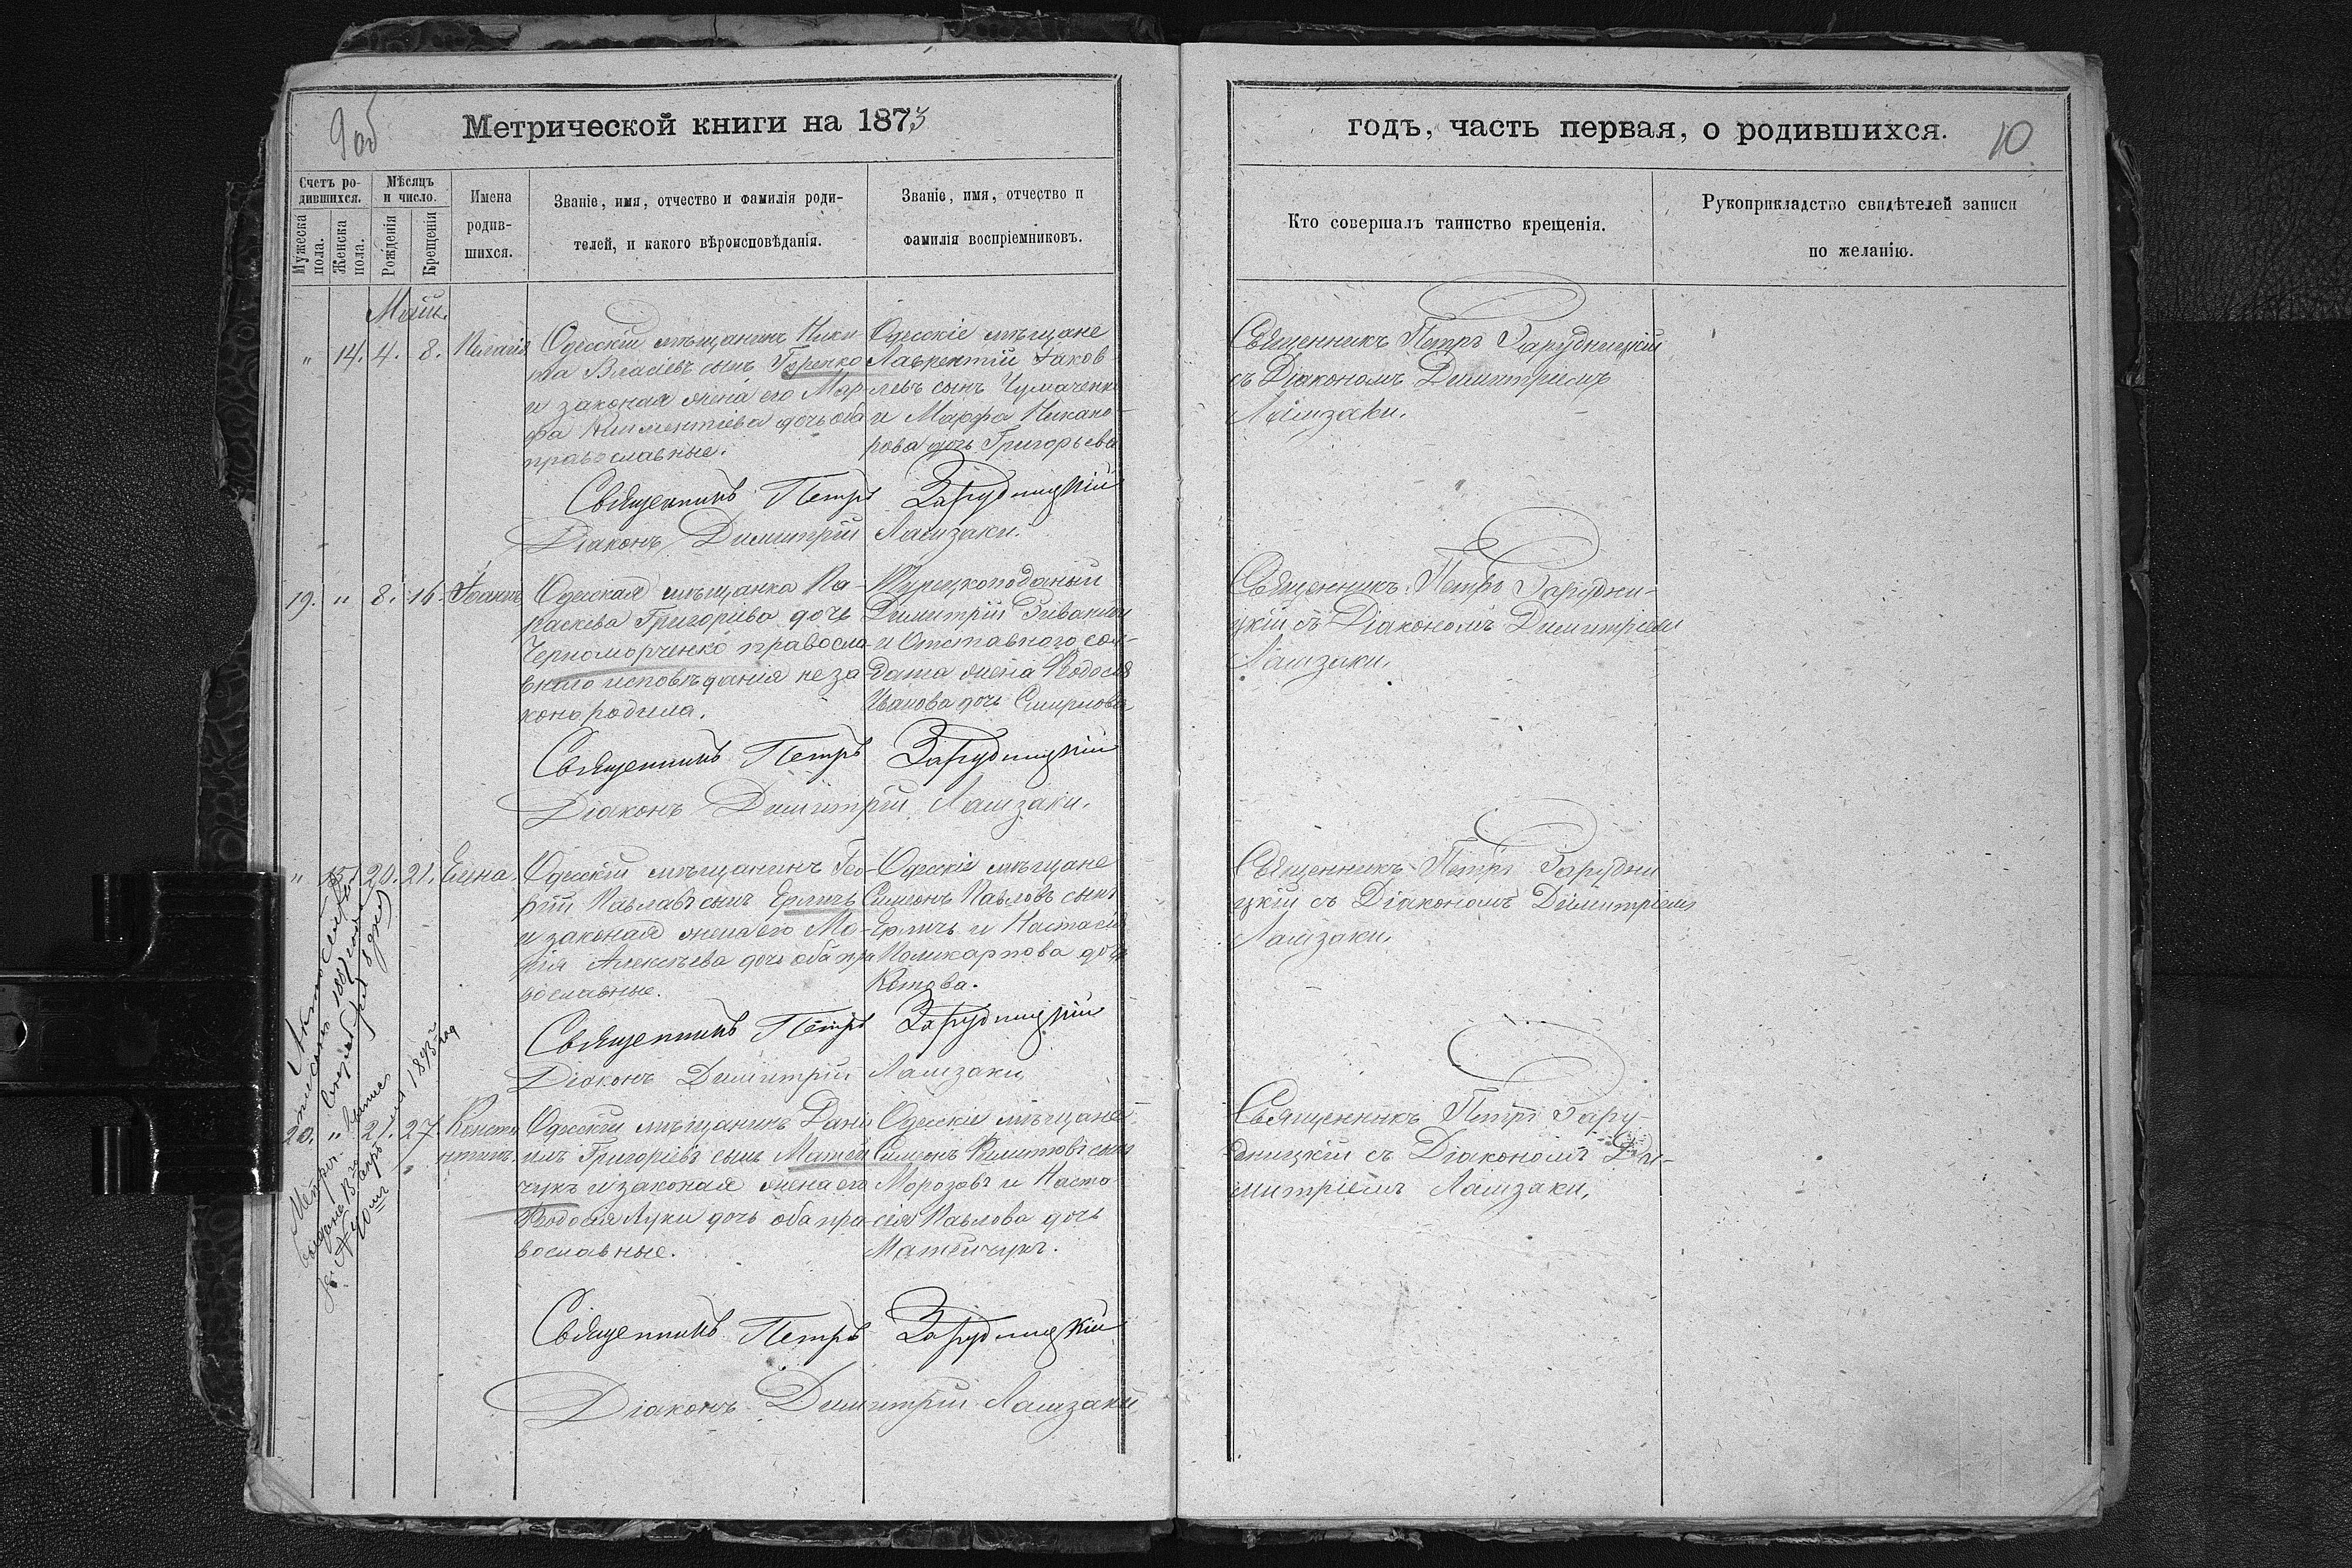 9 об
Метрической книги на 1873
Счетъ ро-
дившихся.
Мужеска пола.
Женска пола.
Мѣсяцъ
и число.
Рожденія
Крещенія
Имена
родив-
шихся.
Званіе, имя, отчество и фамилія роди-
телей, и какого вѣроисповѣданія.
Званіе, имя, отчество и
фамилія воспріемниковъ.
Май.
" 14. 4. 8. Пелагія
Одесскій мѣщанинъ Ники-
та Власіевъ сынъ
и законая жена его Мар-
фа Климентіева дочь оба
православные.
Одесскіе мѣщане
Лаврентій Іаков
левъ сынъ Чумаченко
и Марфа Никано-
рова дочь Григорьева
Священникъ Петръ Зарудницкій
Діаконъ Димитрій Ламзаки.
19. " 8. 16. Іоаннъ
Одесская мѣщанка Па-
раскева Григоріева дочь
Черноморченко правосла-
внаго исповѣданія неза
коно родила.
Турецкоподаный
Димитрій
и Отставного сол-
дата жена Ѳеодосія
Иванова дочь Смирнова
Священникъ Петръ Зарудницкій
Діаконъ Димитрій Ламзаки.
" 15. 20. 21. Елена.
Одесскій мѣщанинъ Гео-
ргій Павловъ сынъ Ерличъ
и законая жена его Ма-
рія Алексѣева дочь оба пра
вославные.
Одесскіе мѣщане
Симеонъ Павловъ сынъ
Ерличъ и Настасія
Поликарпова дочь
Котова.
Священникъ Петръ Зарудницкій
Діаконъ Димитрій Ламзаки
20. " 21. 27. Конста
нтинъ.
Одесскій мѣщанинъ Дані
илъ Григоріевъ сынъ Матей
чукъ и законая жена его
Ѳеодосія Луки дочь оба пра-
вославные.
Одесскіе мѣщане
Симеонъ сынъ
Морозовъ и Наста
сія Павлова дочь
Матейчукъ.
Священникъ Петръ Зарудницкій
Діаконъ Димитрій Ламзаки
годъ, часть первая, о родившихся.
10
Кто совершалъ таинство крещенія.
Рукоприкладство свидѣтелей записи
по желанію.
Священникъ Петръ Зарудницкій
съ Діакономъ Димитріемъ
Ламзаки.
Священникъ Петръ Зарудни-
цкій съ Діакономъ Димитріемъ
Ламзаки.
Священникъ Петръ Зарудни
цкій съ Діакономъ Димитріемъ
Ламзаки.
Священникъ Петръ Зару-
дницкій съ Діакономъ Ди-
митріемъ Ламзаки.